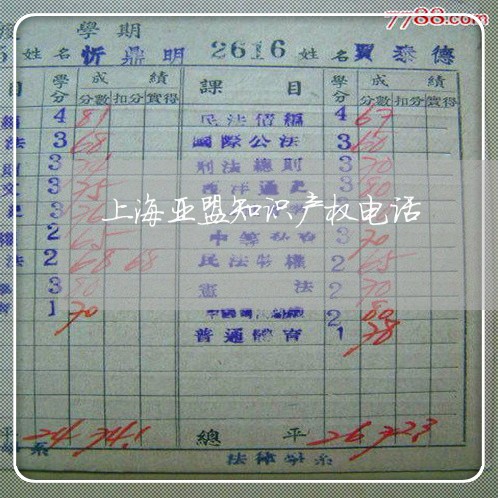 7788.com
學期
姓名 忻鼎明 2616 姓名 賈泰德
目 學分 成績 課目 學分 成績
分數 扣分 實得 分數 扣分 實得
4 81 民法債編 4 67
法 3 68 國際公法 3 60
3 刑法總則 3 70
3 75 西洋通史 3 80
上海亚盟知识产权电话
2 65 3 70
法 2 68 68 民法物權 2 65
3 80 憲法 2 70
1 70 2 80
普通體育 1 78
平 24 74.1 總平 26 72.3
系 法律學系